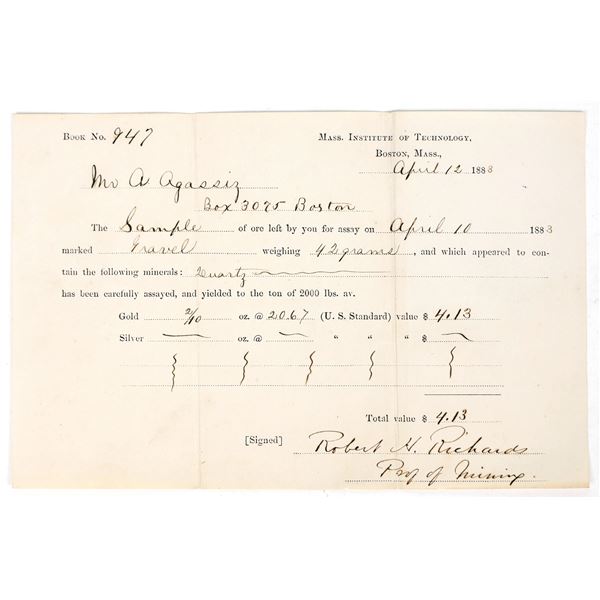 Book No. 947 Mass. Institute of Technology,
Boston, Mass.,
April 12 1883
Mr A Agassiz
Box 3075 Boston
The Sample of ore left by you for assay on April 10 1883
marked Gravel weighing 42 grams, and which appeared to con-
tain the following minerals: Quartz
has been carefully assayed, and yielded to the ton of 2000 lbs. av.
Gold 2/10 oz. @ 20.67 (U. S. Standard) value $ 4.13
Silver — oz. @ — " " " $ —
Total value $ 4.13
[Signed] Robert H. Richards
Prof of Mining.